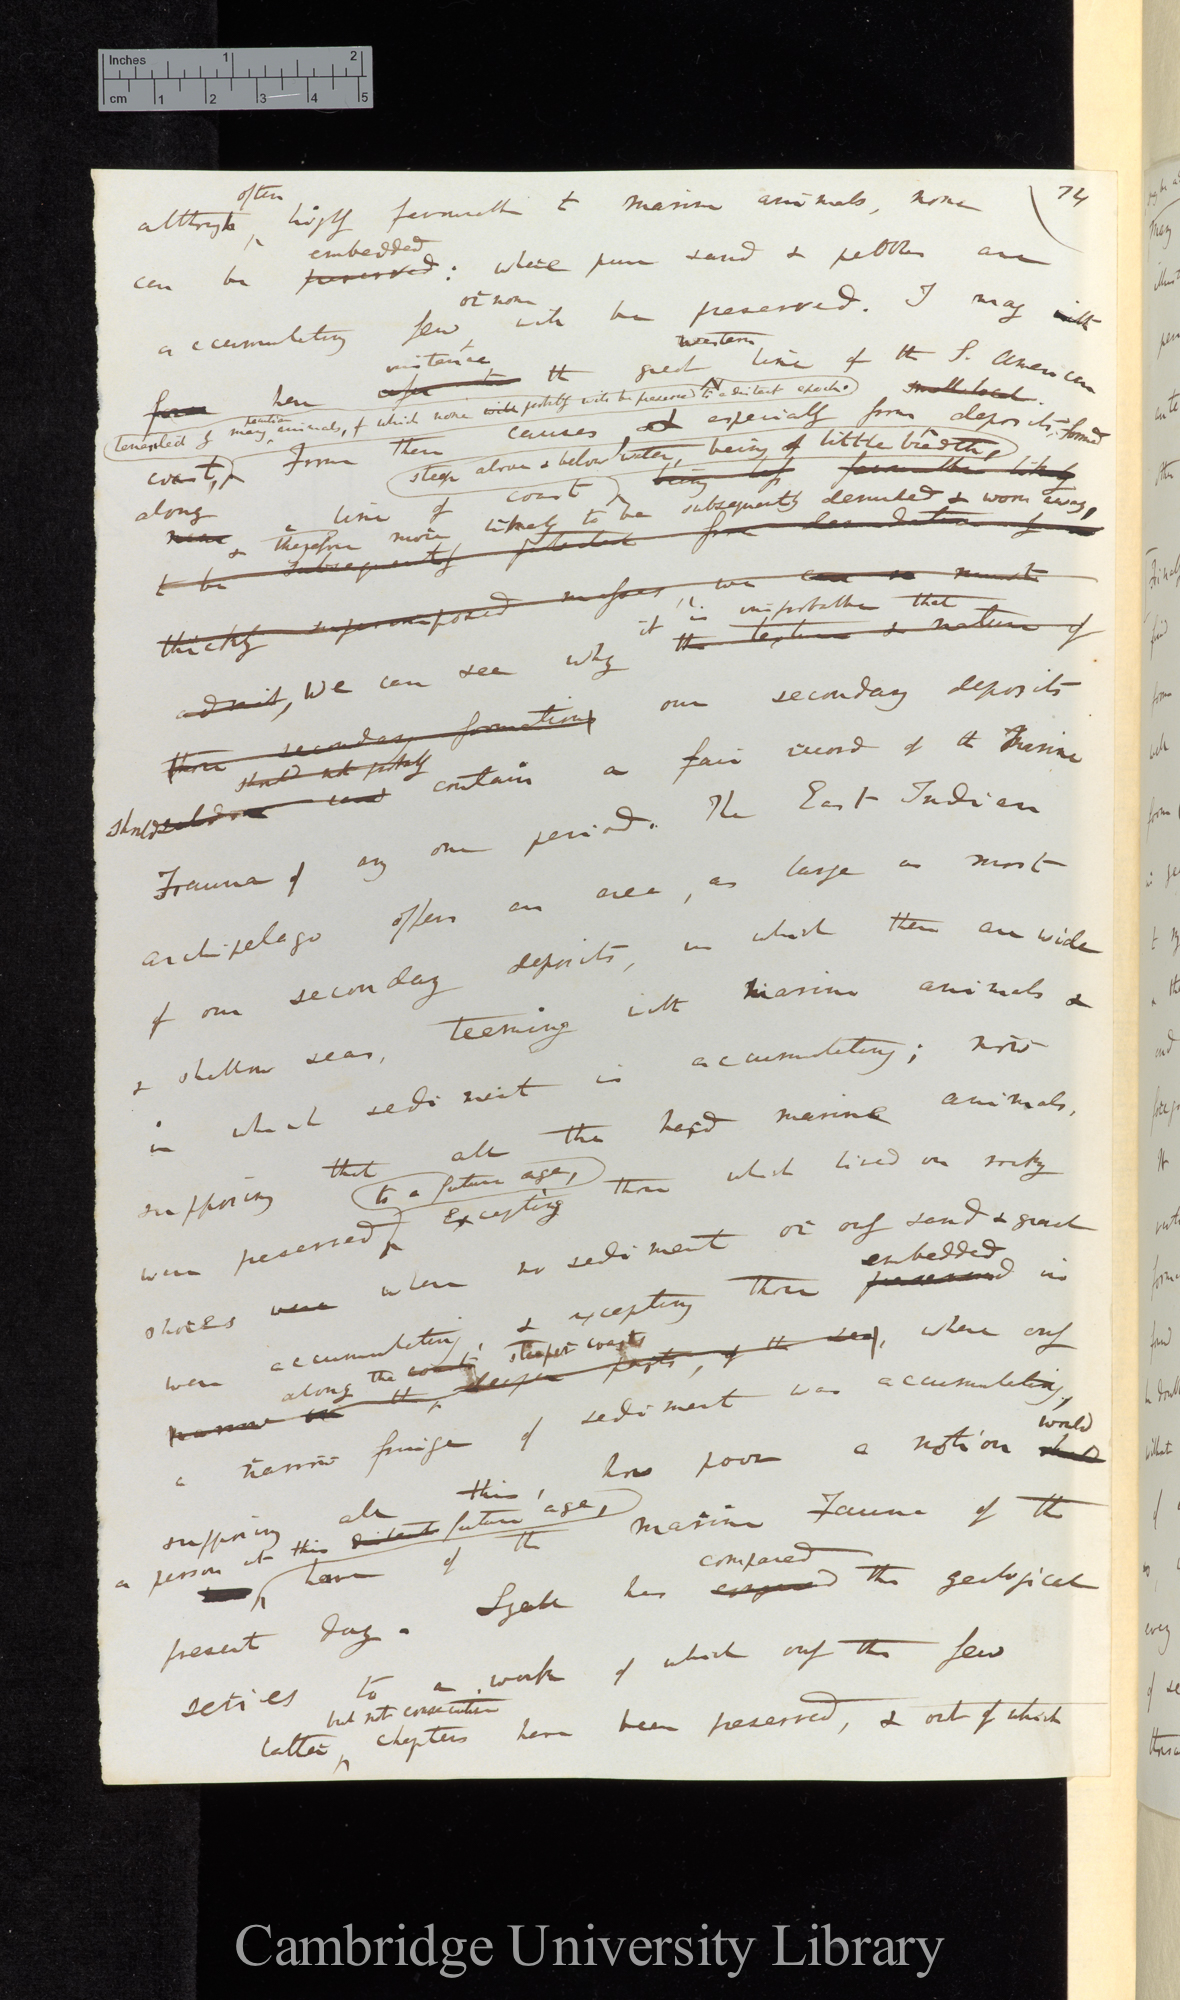 Inches 1 2
cm 1 2 3 4 5
74
often
although highly favourable to marine animals, none
embedded
can be preserved: where pure sand & pebbles are
or none
accumulating few will be preserved. I may with
instance western
here refer to the great line of the S. American
tenanted by many peculiar animals, of which none will probably be preserved to a distant epoch.
coast, From these causes & especially from deposits, formed
steep above & below water, being of little breadth,
along a line of coast being less favourable likely
near & therefore more likely to be subsequently denuded & worn away,
to be subsequently protected from denudation by
thickly superimposed masses, we can so must
it is improbable that
admit, We can see why the texture & nature of
these secondary formations our secondary deposits
should not probably
should seldom contain a fair record of the Marine
Fauna of any one period. The East Indian
archipelago offers an area, as large as most
of our secondary deposits, in which there are wide
& shallow seas, teeming with marine animals &
in which sediment is accumulating; now
supposing that all the hard marine animals,
to a future age,
were preserved excepting those which lived on rocky
shores were where no sediment or only sand & gravel
embedded
were accumulating, & excepting those preserved in
along the coasts steeper coasts
narrow the deeper parts, of the sea, where only
a narrow fringe of sediment was accumulating,
would
supposing all this, how poor a notion
a person at this distant future age,
have of the marine Fauna of the
compared
present day. Lyell has compared the geological
series to a work of which only the few
but not consecutive
latter chapters have been preserved, & out of which
Cambridge University Library